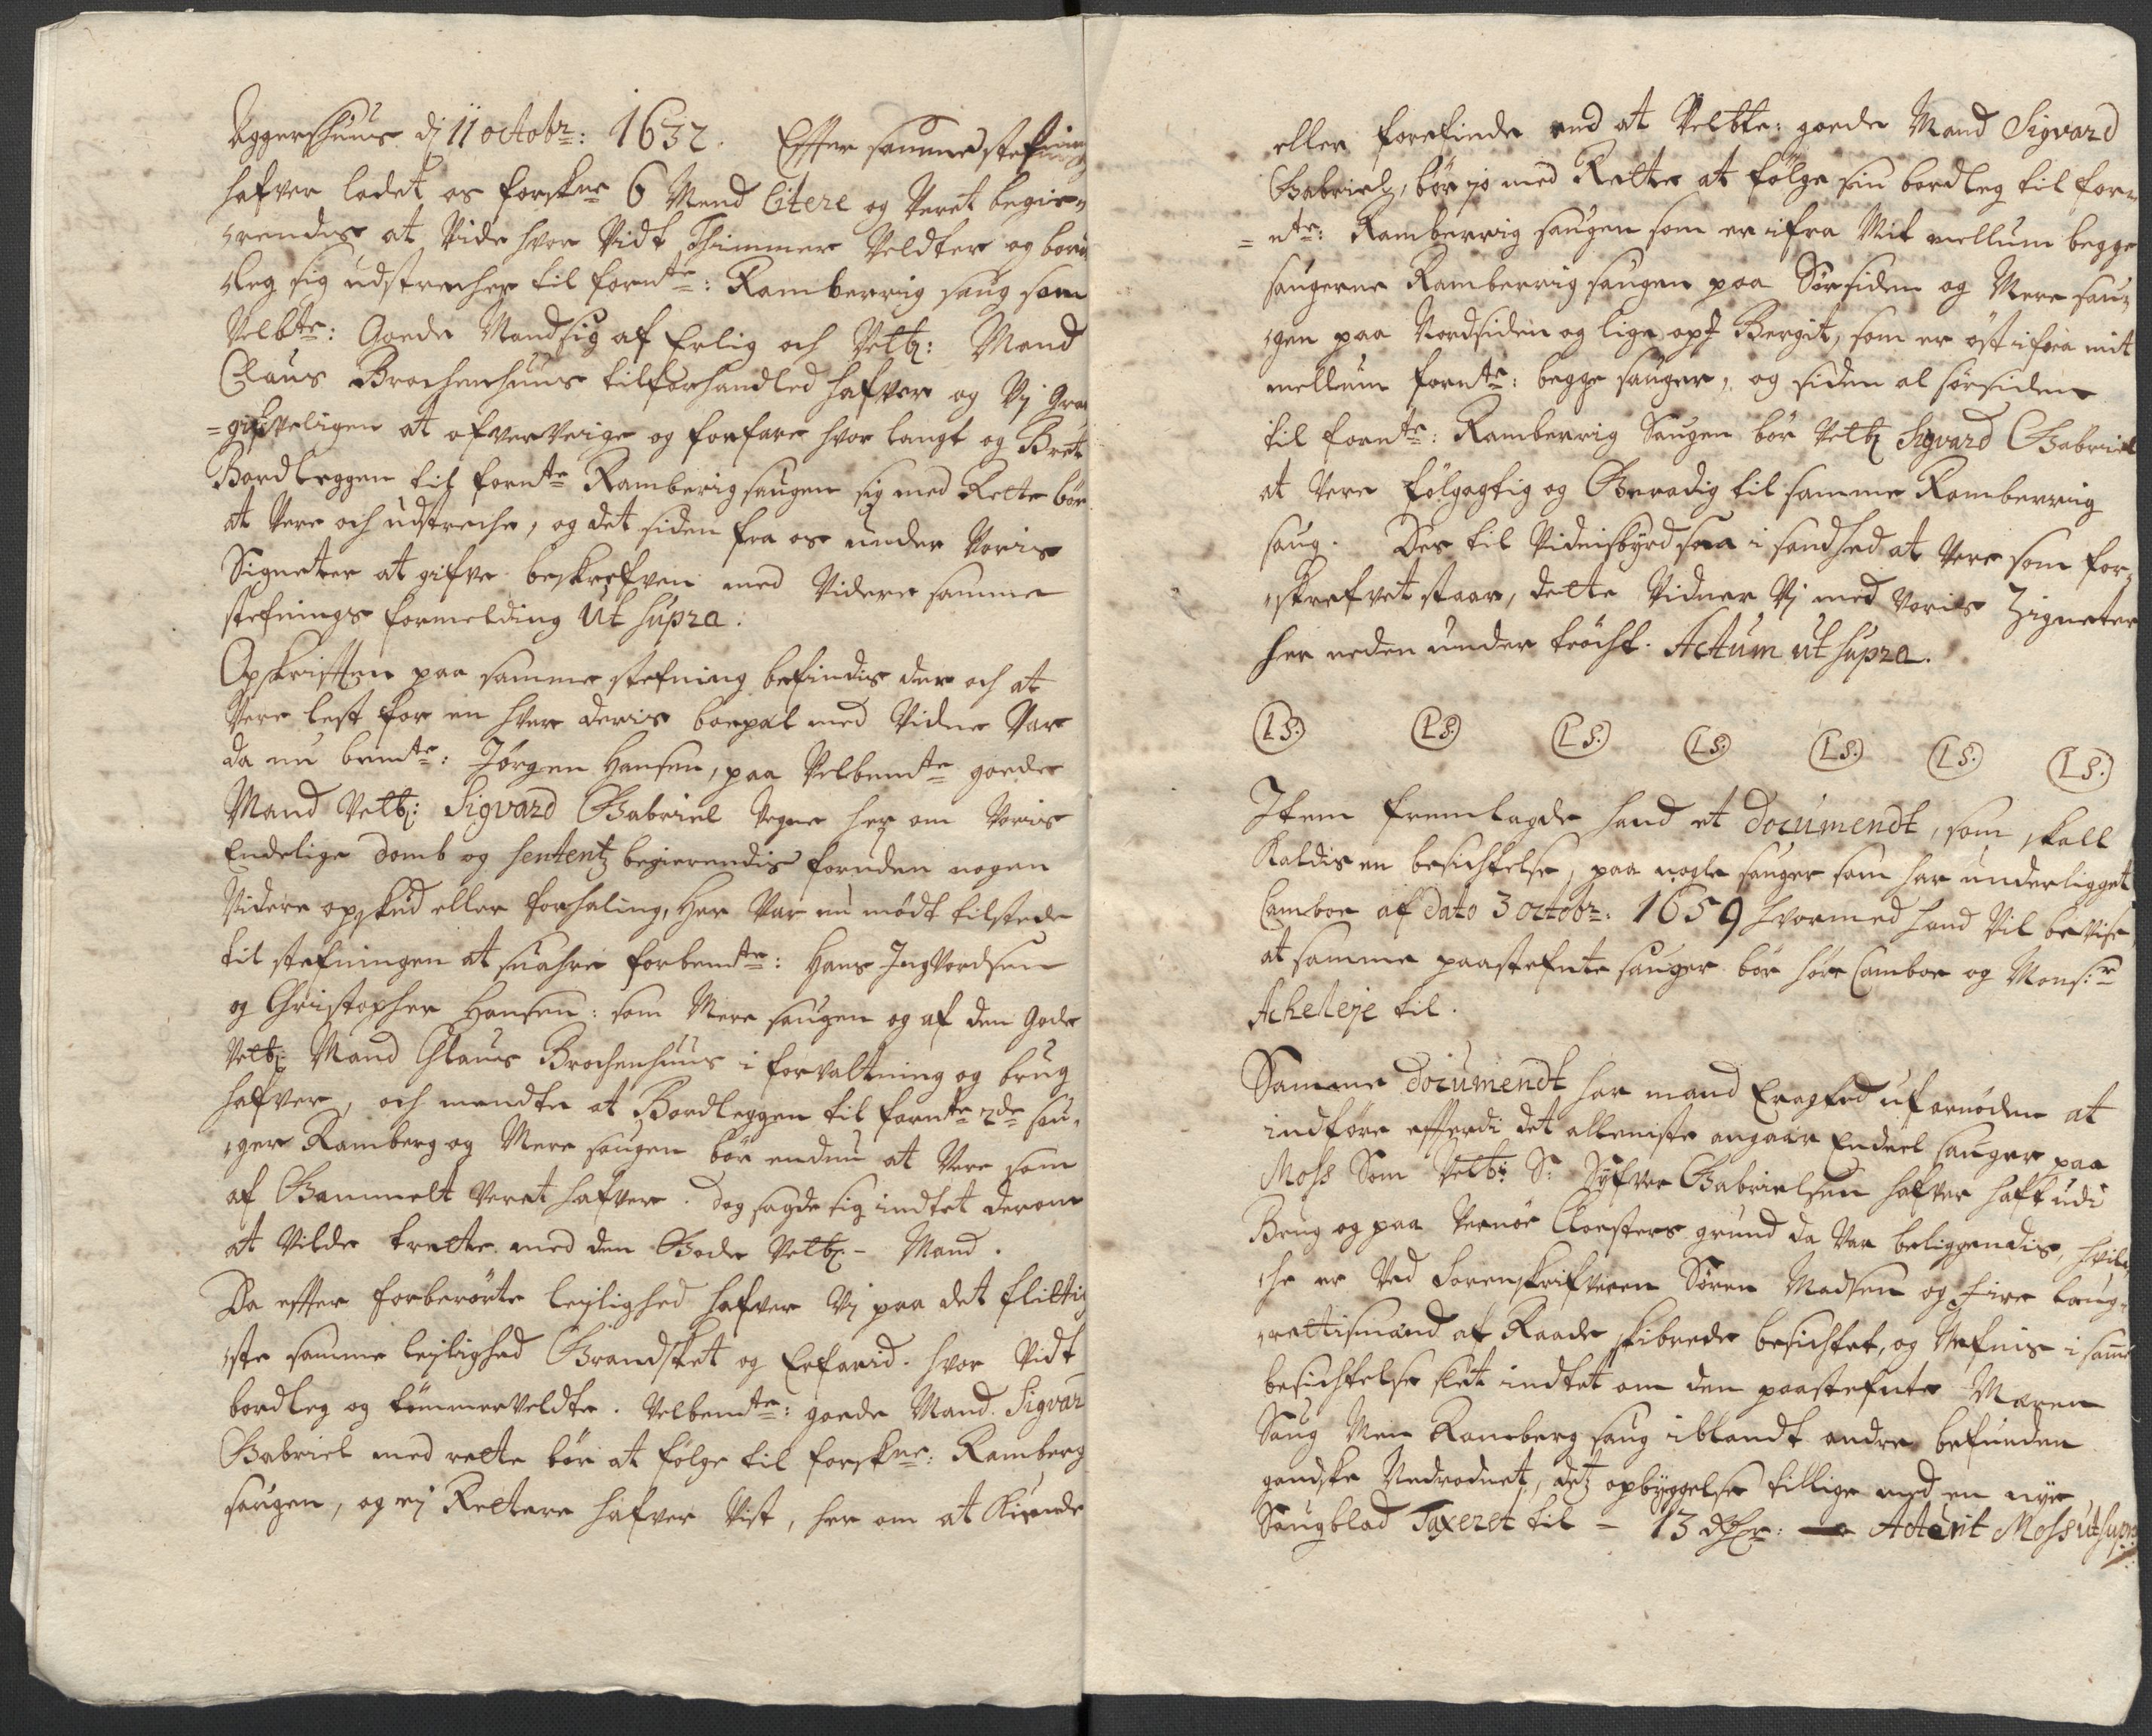 Aggershuus dj 11 octobr: 1632. Effter samme stefning
hafver ladet os forskne 6 Mend Citere og Veret begie-
rendis at Vide hvor Vidt Thimmer Veldter og bord
leg sig udstrecher til fornte: Ramberrig saug som
Velbte: Goede Mand sig af Erlig och Velb: Mand
Claus Brochenhuus tilforhandled hafver og Vj
at ofverveige og forfare hvor langt og Bret
Bordleggen til fornte Ramberig saugen sig med Rette bør
at Vere och udstreche, og det siden fra os under Voris
Signeter at gifve beskrefven med Videre samme
stefnings formelding Ut supra.
Opskrifften paa samme stefning befindis der och at
Vere lest for en hver deris boepæl med Vidne Var
da nu bemte: Jørgen Hansen, paa Velbemte goede
Mand Velb: Sigvard Gabriel Vegne her om Voris
Endelige domb og sententz begierendis foruden nogen
Videre opskud eller forhaling, Her Var nu mødt tilstede
til stefningen at suahre forbemte: Hans IngVordsen
og Christopher Hansen: som Mere saugen og af den Gode
Velb: Mand Claus Brochenhuus i forvaltning og brug
hafver, och mendte at Bordleggen til fornte 2de sau-
ger Ramberg og Mere saugen bør endnu at Vere som
af Gammelt Veret hafver. dog sagde sig indtet derom
at Vilde trette med den Gode Velb: Mand.
Da effter forberørte leylighed hafver Vj paa det flittig
ste samme leylighed Grandsket og Erfarid. hvor Vidt
bordleg og tømmerVeldte. Velbemte: goede Mand Sigvar
Gabriel med rette bør at følge til forskne: Ramberg
saugen, og ej Rettere hafver Vist, her om at Kiende
eller forefinde end at Velbte: goede Mand Sigvard
Gabriel, bør jo med Rette at følge sin bordleg til for-
nte: Ramberrig saugen som er ifra Mit mellum begge
saugerne Ramberrig saugen paa Sørsiden og Mere sau-
gen paa Nordsiden og lige op I Bergit, som er øst ifra mit
mellum fornte: begge sauger, og siden al sørsiden
til fornte: Ramberrig Saugen bør Velb: Sigvard Gabriel
at Vere følgagtig og Beradig til samme Ramberrig
saug. Des til Vidnisbyrd saa i sandhed at Vere som for-
skrefvet staar, dette Vidner Vj med Voris Zigneter
her neden under tröcht. Actum ut supra.
LS. LS. LS. LS. LS. LS. LS.
Item fremlagde hand et documendt, som skall
Kaldis en besichtelse, paa nogle sauger som har underligget
Camboe af dato 3 octobr: 1659 hvormed hand Vil bevise
at samme paastefnte sauger bør høre Camboe og Monsr
Acheleje til.
Samme documendt har mand Eragted ufornøden at
indføre efterdi det alleniste angaar Endeel sauger paa
Moss Som Velb: S: Syfver Gabrielsen hafver haft udi
Brug og paa Vernøe Cloesters grund da Var beliggendis, hvil-
che er Ved Sorenskrifveren Søren Madsen og fire laug-
rettismænd af Raade skibrede besichtet, og Nefnis i samme
besichtelse slet indtet om den paastefnte Maren
Saug Men Ramberg saug iblandt andre befunden
gandske Nedradnet, detz opbyggelse tillige med en nye
Saugblad Taxeret til - 13 dlr: Actum Moss ut supra